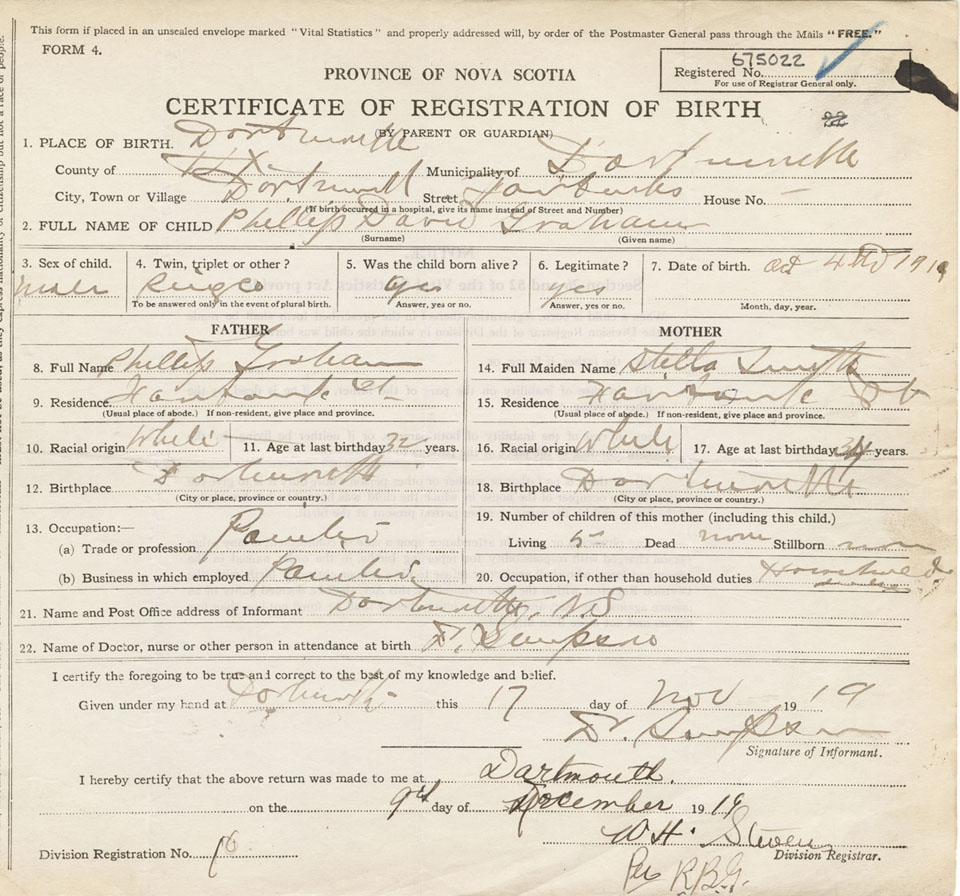 This form if placed in an unsealed envelope marked "Vital Statistics" and properly addressed will, by order of the Postmaster General pass through the Mails "FREE."
FORM 4.
675022
Registered No.
For use of Registrar General only.
PROVINCE OF NOVA SCOTIA
CERTIFICATE OF REGISTRATION OF BIRTH
22
(BY PARENT OR GUARDIAN)
1. PLACE OF BIRTH. Dartmouth
County of Hx. Municipality of Dartmouth
City, Town or Village Dartmouth Street House No. –
(If birth occurred in a hospital, give its name instead of Street and Number)
2. FULL NAME OF CHILD Phillip David Graham
(Surname) (Given name)
3. Sex of child. 4. Twin, triplet or other? 5. Was the child born alive? 6. Legitimate? 7. Date of birth. Oct 4th 1919
male yes yes
To be answered only in the event of plural birth. Answer, yes or no. Answer, yes or no. Month, day, year.
FATHER MOTHER
8. Full Name Phillip Graham 14. Full Maiden Name Stella Smith
9. Residence St 15. Residence St
(Usual place of abode.) If non-resident, give place and province. (Usual place of abode.) If non-resident, give place and province.
10. Racial origin White 11. Age at last birthday 32 years. 16. Racial origin White 17. Age at last birthday years.
12. Birthplace Dartmouth 18. Birthplace Dartmouth
(City or place, province or country.) (City or place, province or country.)
13. Occupation:— 19. Number of children of this mother (including this child.)
(a) Trade or profession Painter Living 5 Dead none Stillborn none
(b) Business in which employed Painter 20. Occupation, if other than household duties
21. Name and Post Office address of Informant Dartmouth, N.S
22. Name of Doctor, nurse or other person in attendance at birth Dr. Simpson
I certify the foregoing to be true and correct to the best of my knowledge and belief.
Given under my hand at Dartmouth this 17 day of Nov 1919
Dr. Simpson
Signature of Informant.
I hereby certify that the above return was made to me at Dartmouth.
on the 9th day of December 1919
W H. Steven
Division Registration No. Division Registrar.
Per R.B.G.